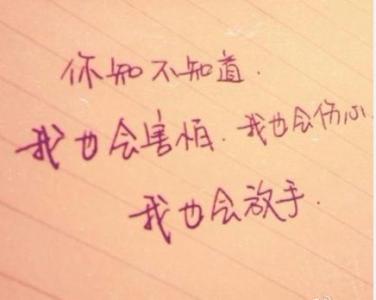 你知不知道.
我也会害怕.我也会伤心
我也会放手.